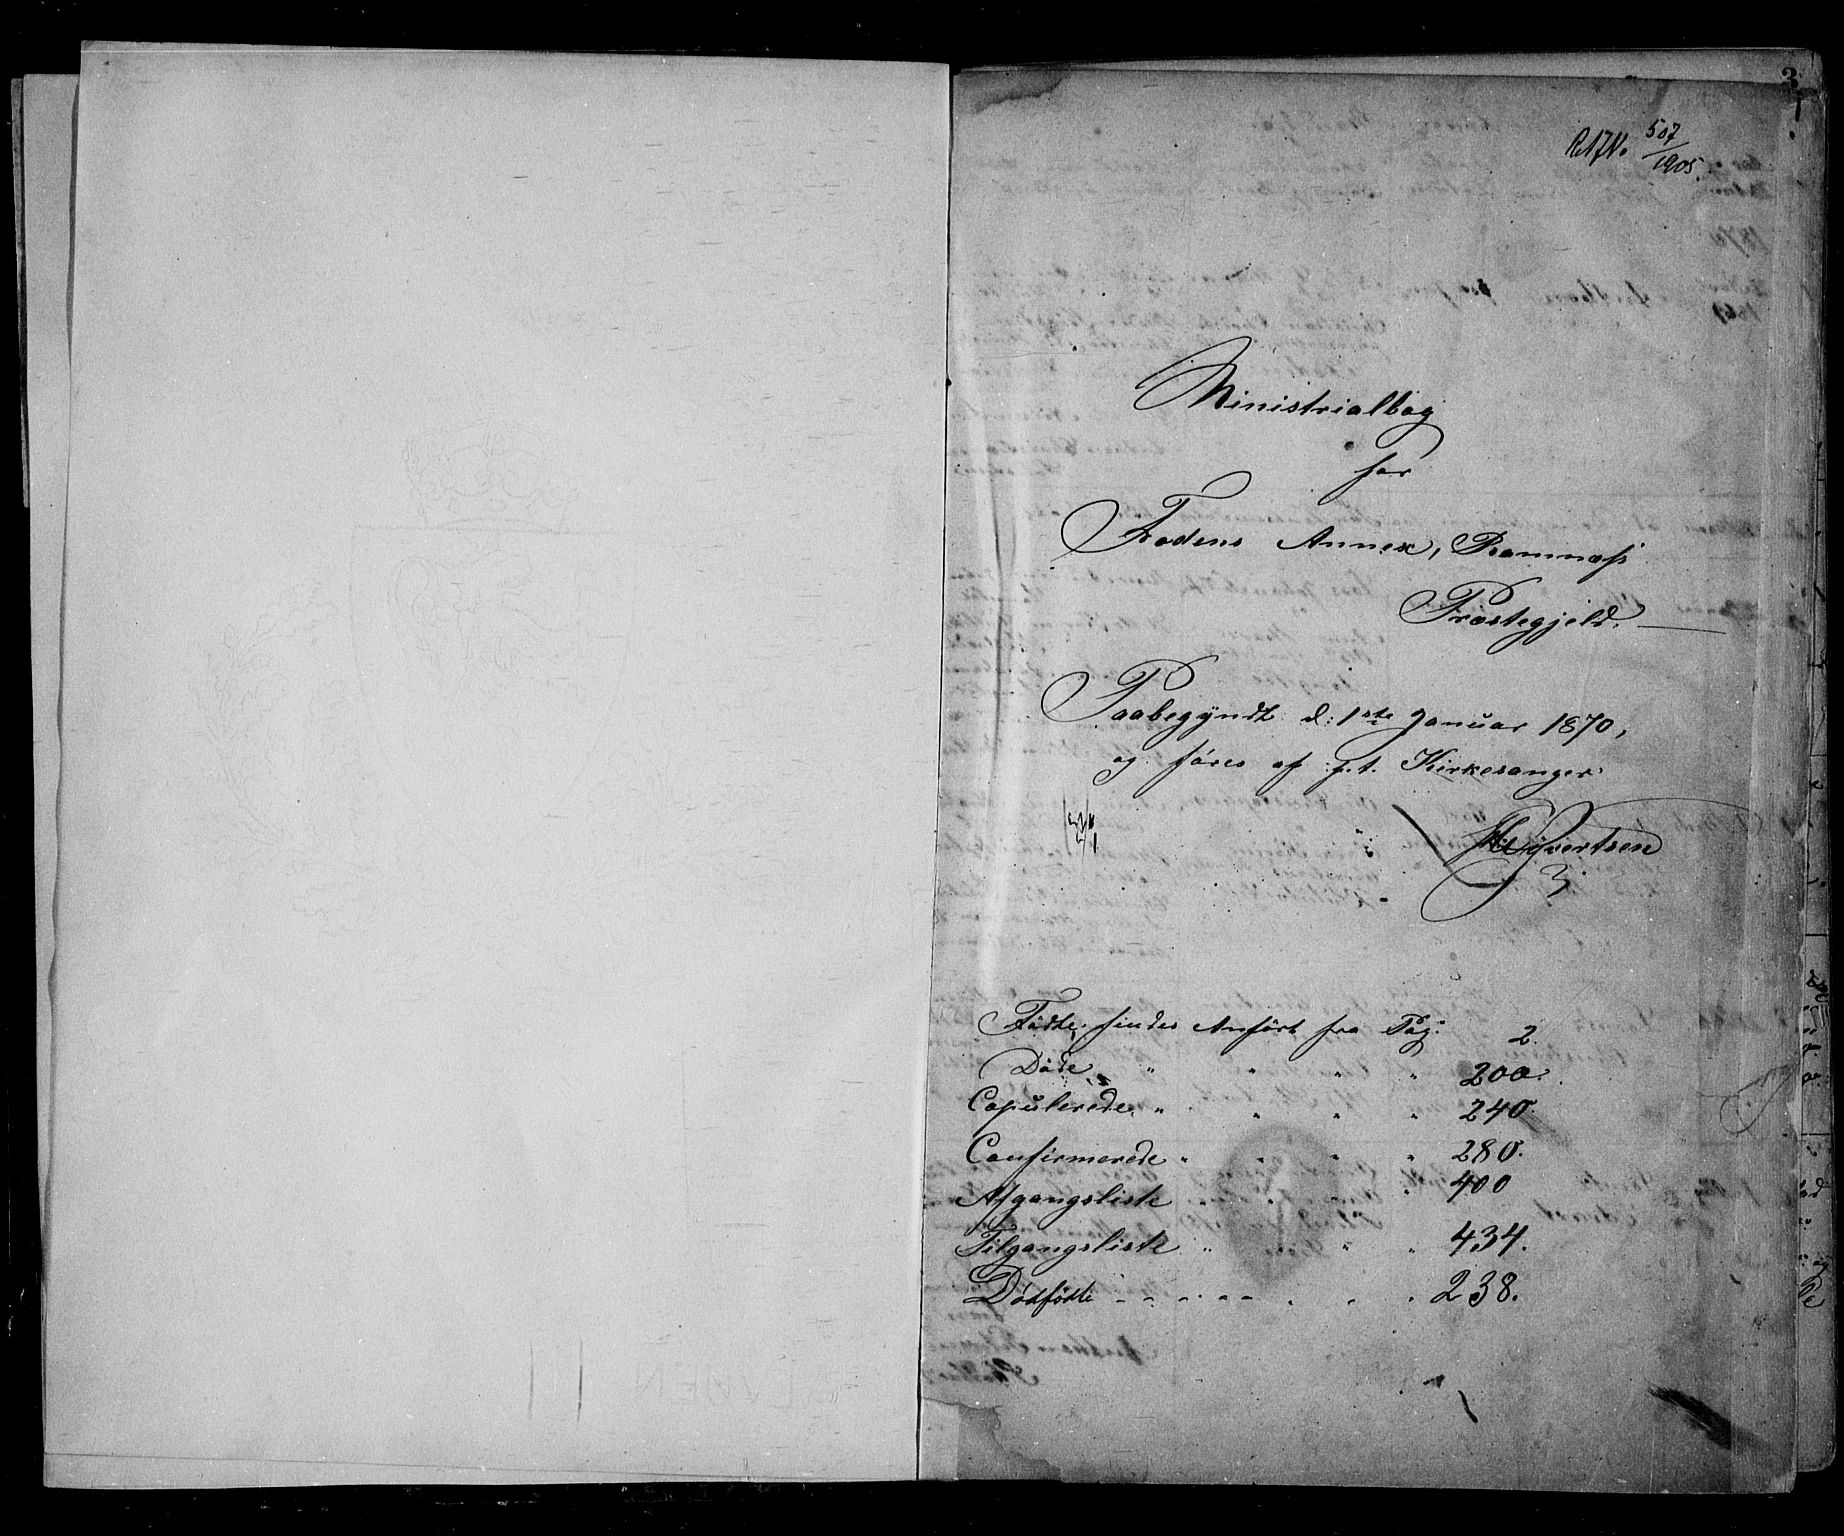 3
R.A.J.N. 507/1905.
Ministrialbog
for
Fodens Annex, Ramnæss
Præstegjeld.
Paabegÿndt d: 1ste Januar 1870,
og føres af p.t. Kirkesanger
Sÿvertsen
Födte findes Anfört fra Pag: 2.
Döde " " " " 200.
Copulerede " " " " 240.
Confirmerede " " " " 280.
Afgangsliste " " " " 400
Tilgangsliste " " " 434.
Dødfödte - - - - - - " " " 238.